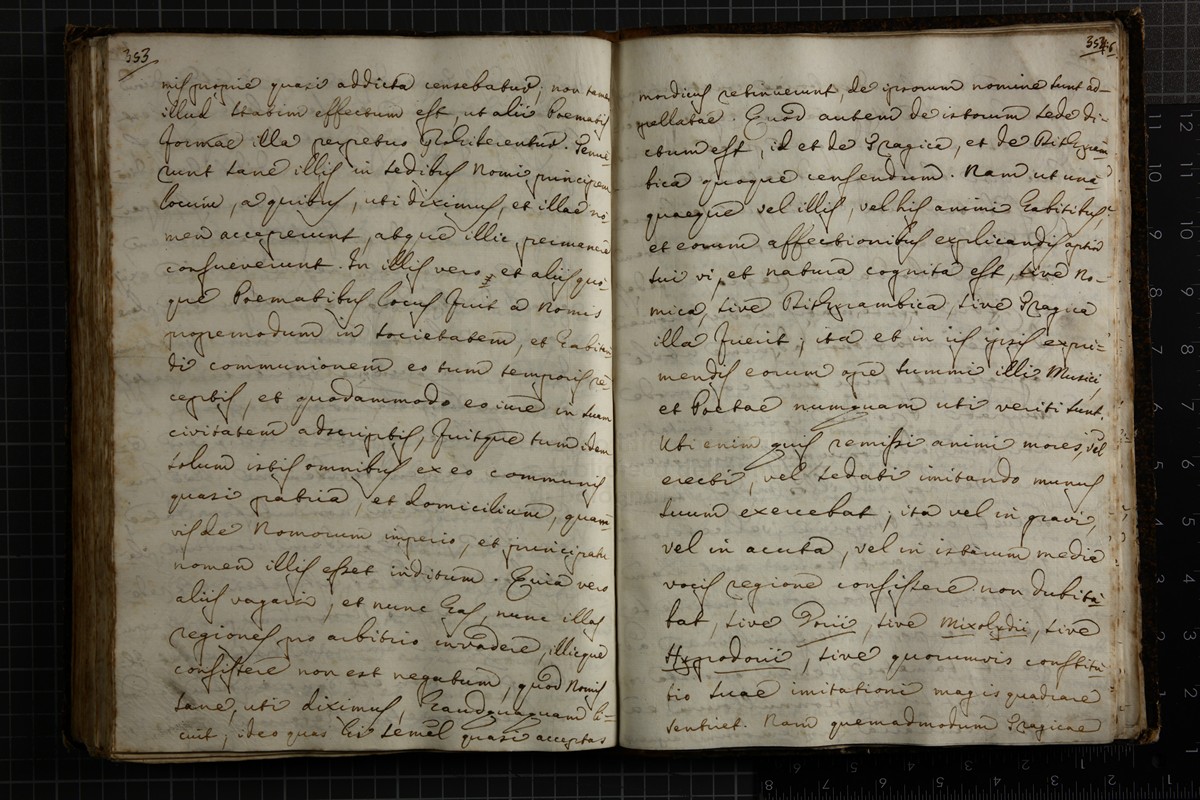 353
mis proprie quasi addicta censebatur, non tamen
illud statim effectum est, ut alii Poematis
formae illa perpetuo prohiberentur. Tenue-
runt sane illis in sedibus Nomi principem
locum, a quibus, uti diximus, et illae no-
men acceperunt, atque illic permanere
consueverunt. In illis vero, et aliis quo-
que Poematibus locus fuit a Nomis
propemodum in societatem, et habitan-
di communionem eo tum temporis re-
ceptis, et quodammodo eo iure in suam
civitatem adscriptis, fuitque tum idem
solum istis omnibus ex eo communis
quasi patria, et domicilium, quam-
vis de Nomorum imperio, et principatu
nomen illis esset inditum. Quia vero
aliis vagari, et nunc has, nunc illas
regiones pro arbitrio invadere, illicque
consistere non est negatum, quod Nomis
sane, uti diximus, haudquaquam li-
cuit, ideo quas hi semel quasi acceptas
354
mordicus retinuerunt, de ipsorum nomine sunt ad-
pellatae. Quod autem de istorum sede di-
ctum est, id et de Tragica, et de Dithyram-
bica quoque censendum. Nam ut una
quaeque vel illis, vel his animi habitibus,
et eorum affectionibus explicandis apta
sui vi, et natura cognita est, sive No-
mica, sive Dithyrambica, sive Tragica
illa fuerit; ita et in iis ipsis expri-
mendis eorum ope summi illi Musici,
et Poetae numquam uti veriti sunt.
Ubi enim quis remissi animi mores, vel
erecti, vel sedati imitando munus
suum exercebat; ita vel in gravi,
vel in acuta, vel in istarum media
vocis regione consistere non dubita-
bat, sive Dorii, sive Mixolydii, sive
Hypodorii, sive quorumvis constitu-
tio suae imitationi magis quadrare
sentiret. Nam quemadmodum Tragicae